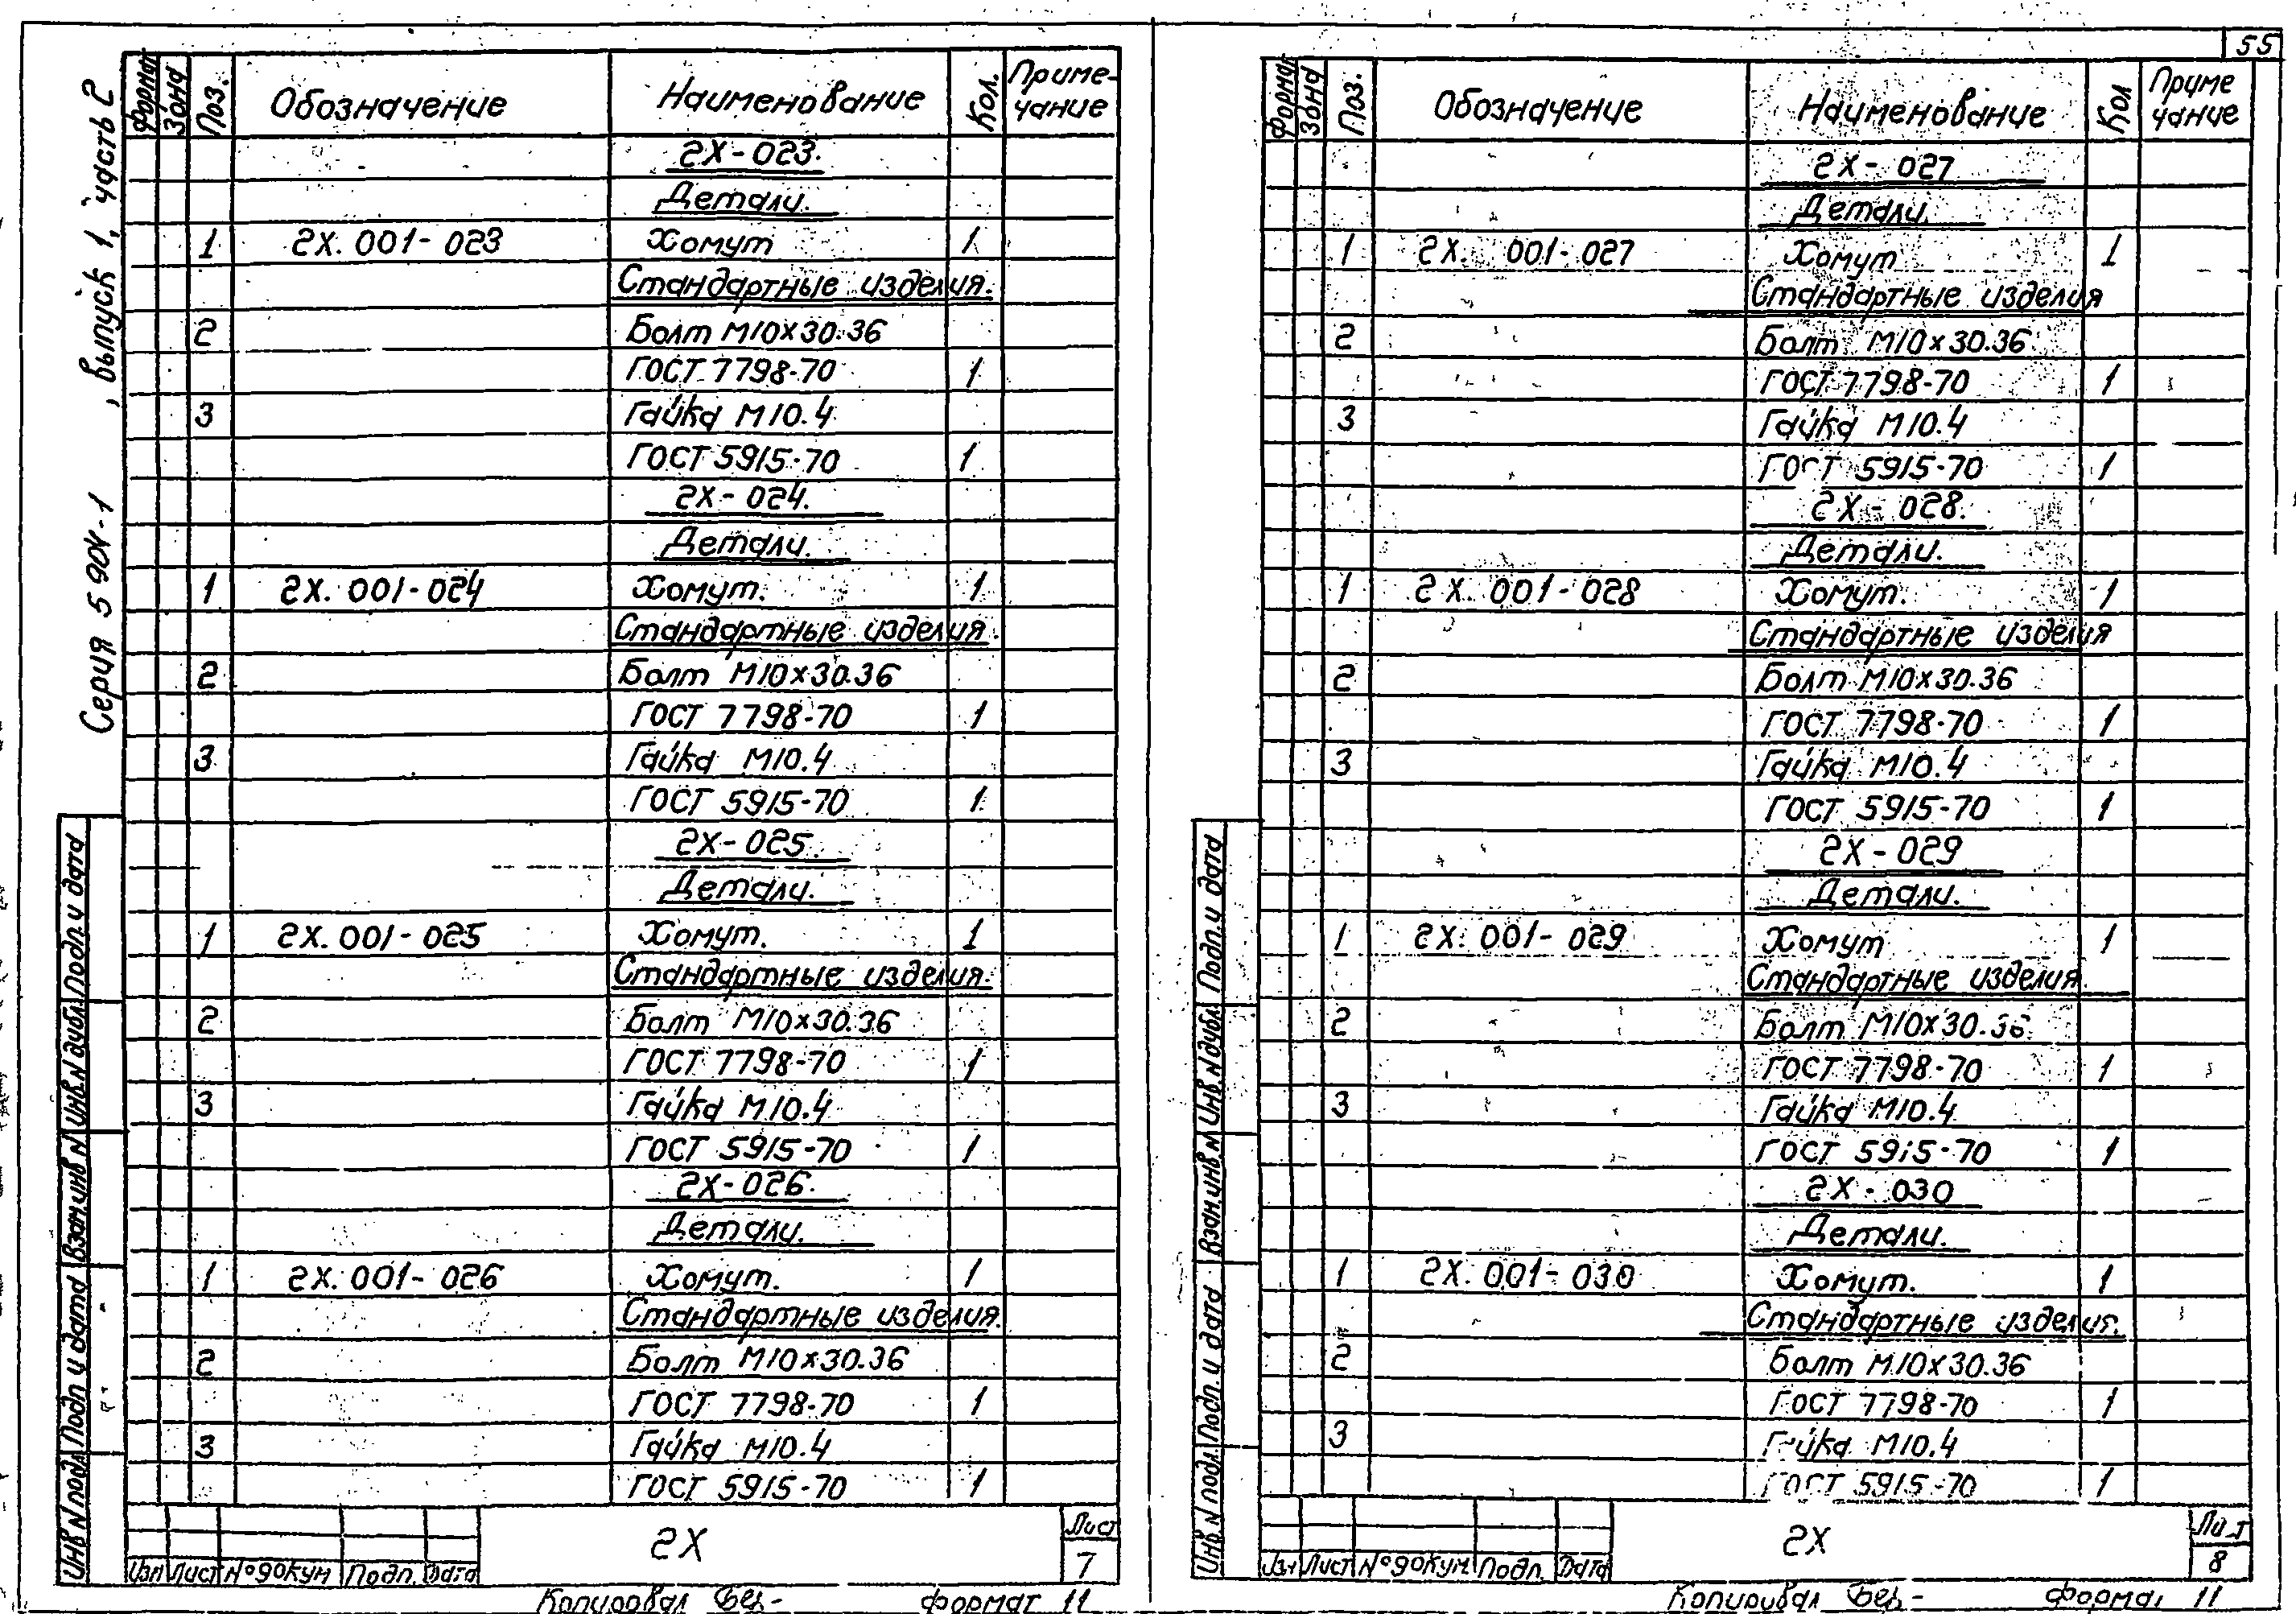 55
Серия 5 904-1 , выпуск 1, часть 2
Формат Зона Поз. Обозначение Наименование Кол. Приме-
чание
2Х-023.
Детали.
1 2Х.001-023 Хомут 1
Стандартные изделия.
2 Болт М10х30.36
ГОСТ 7798-70 1
3 Гайка М10.4
ГОСТ 5915-70 1
2Х-024.
Детали.
1 2Х.001-024 Хомут. 1
Стандартные изделия.
2 Болт М10х30.36
ГОСТ 7798-70 1
3 Гайка М10.4
ГОСТ 5915-70 1
2Х-025.
Детали.
1 2Х.001-025 Хомут. 1
Стандартные изделия.
2 Болт М10х30.36
ГОСТ 7798-70 1
3 Гайка М10.4
ГОСТ 5915-70 1
2Х-026.
Детали.
1 2Х.001-026 Хомут. 1
Стандартные изделия.
2 Болт М10х30.36
ГОСТ 7798-70 1
3 Гайка М10.4
ГОСТ 5915-70 1
Инв N подл. Подп и дата Взам.инв N Инв N дубл. Подп. и дата
2Х
Лист
7
Изм Лист №докум Подп. Дата
Копировал формат 11
Формат Зона Поз. Обозначение Наименование Кол Приме
чание
2Х-027
Детали.
1 2Х. 001-027 Хомут 1
Стандартные изделия
2 Болт М10х30.36
ГОСТ 7798-70 1
3 Гайка М10.4
ГОСТ 5915-70 1
2Х-028.
Детали.
1 2Х 001-028 Хомут. 1
Стандартные изделия
2 Болт М10х30.36
ГОСТ 7798-70 1
3 Гайка М10.4
ГОСТ 5915-70 1
2Х-029
Детали.
1 2Х.001-029 Хомут 1
Стандартные изделия
2 Болт М10х30.36
ГОСТ 7798-70 1
3 Гайка М10.4
ГОСТ 5915-70 1
2Х-030
Детали.
1 2Х.001-030 Хомут. 1
Стандартные изделия.
2 Болт М10х30.36
ГОСТ 7798-70 1
3 Гайка М10.4
ГОСТ 5915-70 1
Инв N подл. Подп. и дата Взам.инв N Инв N дубл. Подп. и дата
2Х
Лист
8
Изм Лист №докум. Подп. Дата
Копировал формат 11